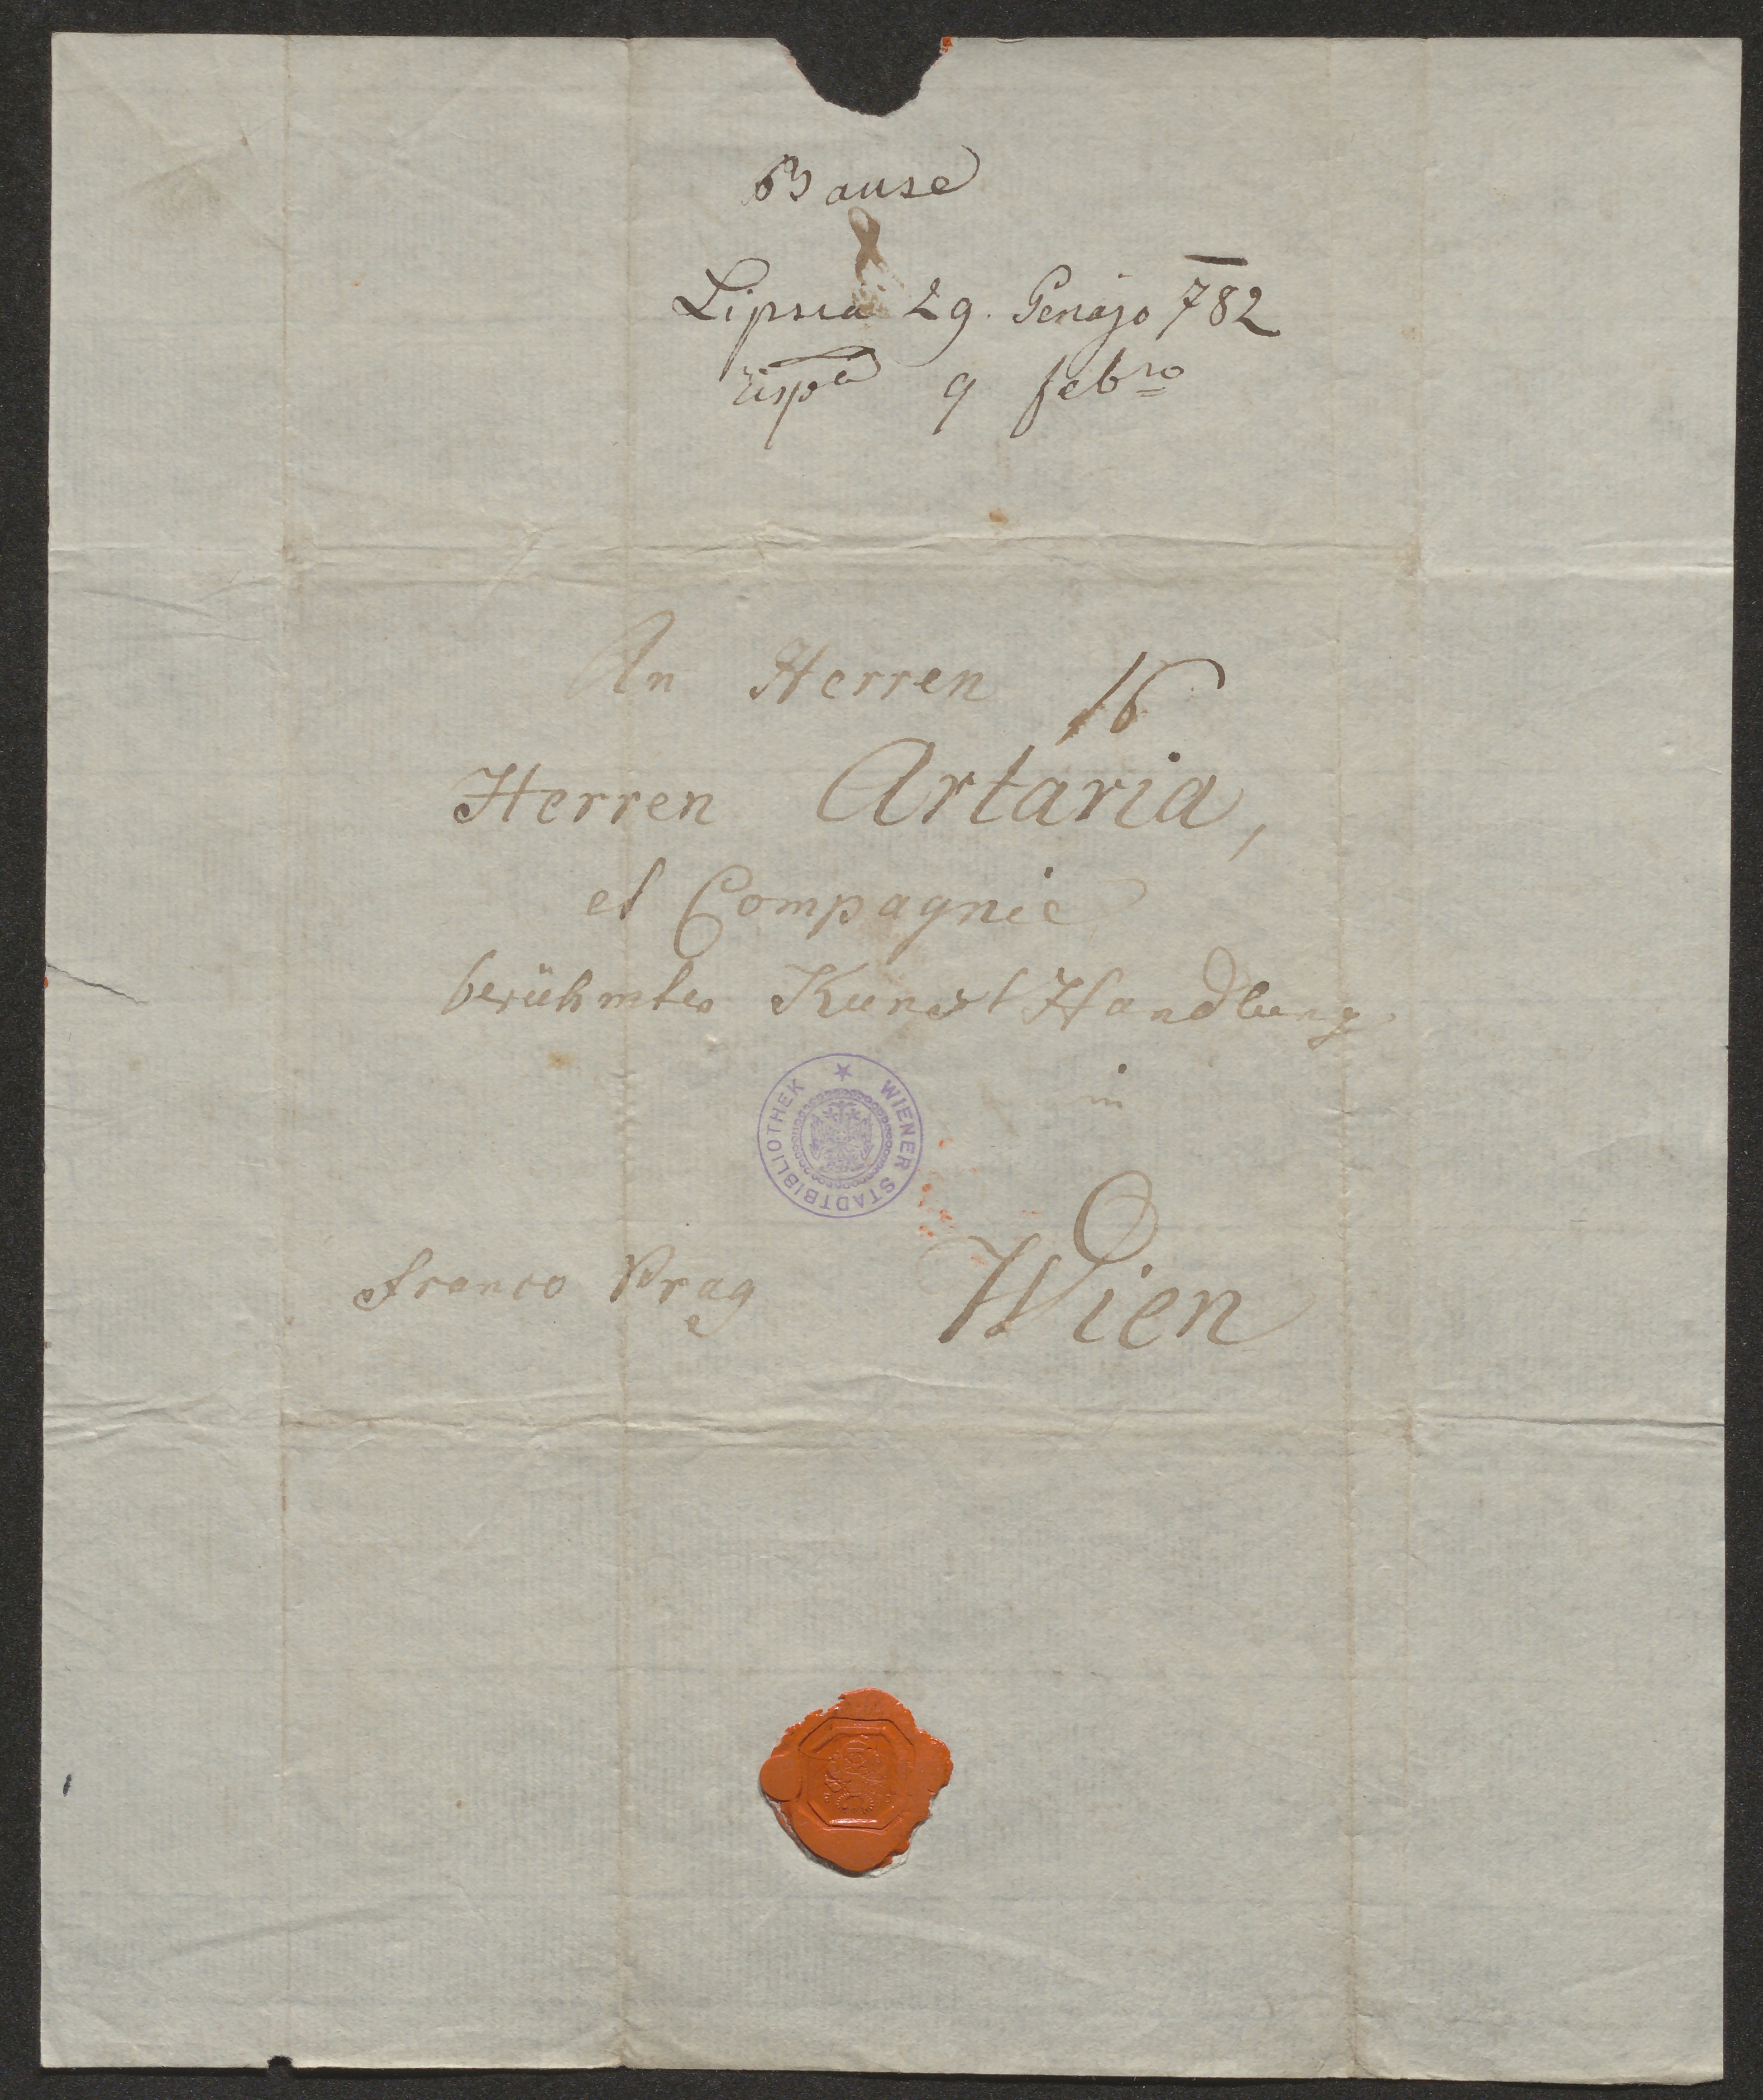 Bause
Lipsia 29. Genajo 782
rispa 9 febro
An Herren
16
Herren Artaria,
et Compagnie
berühmter Kunst Handlung
in
WIENER STADTBIBLIOTHEK
franco Prag
Wien